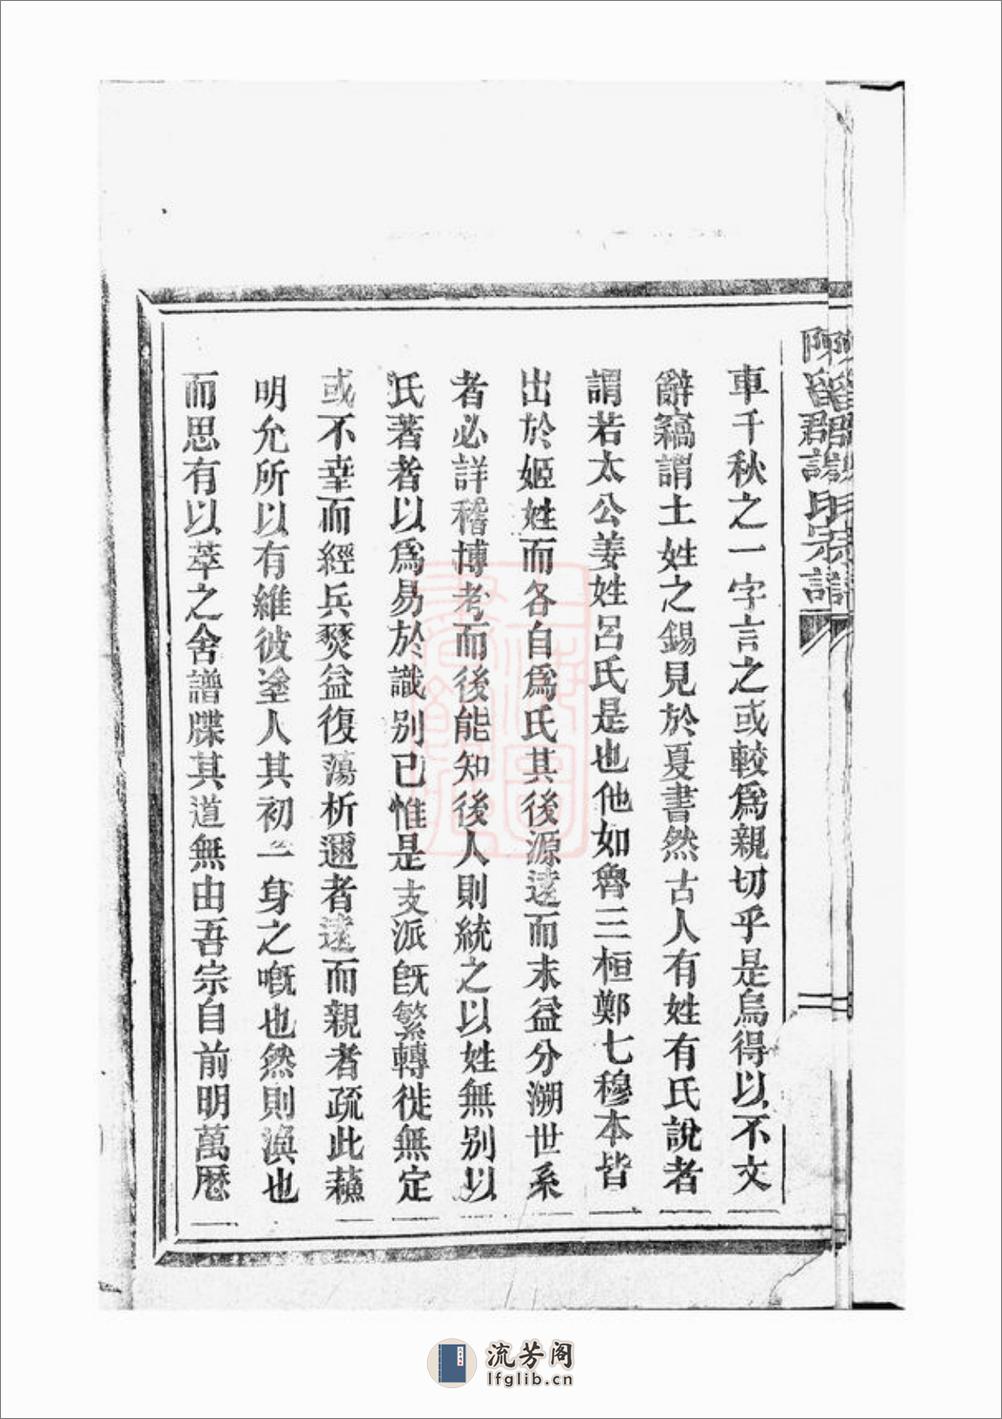 車千秋之一字言之或較爲親切乎是烏得以不文
辭竊謂土姓之錫見於夏書然古人有姓有氏說者
謂若太公姜姓呂氏是也他如魯三桓鄭七穆本皆
出於姬姓而各自爲氏其後源遠而末益分溯世系
者必詳稽博考而後能知後人則統之以姓無别以
氏著者以爲易於識别已惟是支派旣繁轉徙無定
或不幸而經兵燹益復蕩析邇者遠而親者疏此蘇
明允所以有維彼塗人其初一身之嘅也然則渙也
而思有以萃之舍譜牒其道無由吾宗自前明萬厯
陳留郡謝氏宗譜
流芳阁
lfglib.cn